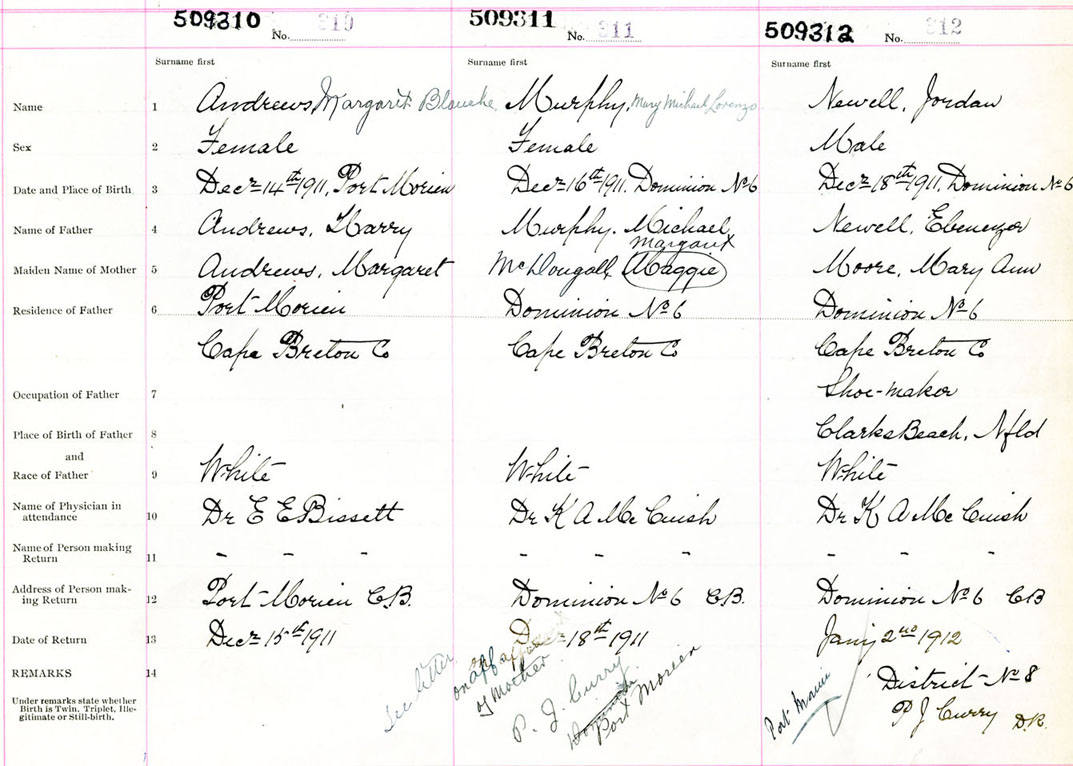 509310 No. 310 509311 No. 311 509312 No. 312
Surname first Surname first Surname first
Name 1 Andrews, Margaret Blanche Murphy, Mary Michael Lorenzo Newell, Jordan
Sex 2 Female Female Male
Date and Place of Birth 3 Decr 14th 1911, Port Morien Decr 16th 1911, Dominion No 6 Decr 18th 1911, Dominion No 6
Name of Father 4 Andrews, Harry Murphy. Michael Newell, Ebenezer
Margaret
Maiden Name of Mother 5 Andrews, Margaret McDougall, Maggie Moore, Mary Ann
Residence of Father 6 Port Morien Dominion No 6 Dominion No 6
Cape Breton Co Cape Breton Co Cape Breton Co
Occupation of Father 7 Shoe-maker
Place of Birth of Father 8 Clarks Beach, Nfld
and
Race of Father 9 White White White
Name of Physician in
attendance 10 Dr E E Bissett Dr K A McCuish Dr K A McCuish
Name of Person making
Return 11 - - - - - - - - -
Address of Person mak-
ing Return 12 Port Morien C.B. Dominion No 6 C.B. Dominion No 6 CB
Date of Return 13 Decr 15th 1911 Decr 18th 1911 Jany 2nd 1912
REMARKS 14 District No 8
Under remarks state whether
Birth is Twin, Triplet, Ille-
gitimate or Still-birth.
See letter
on
of Mother
P. J. Curry
Dominion
Port Morien
Port Morien
P J Curry D.R.